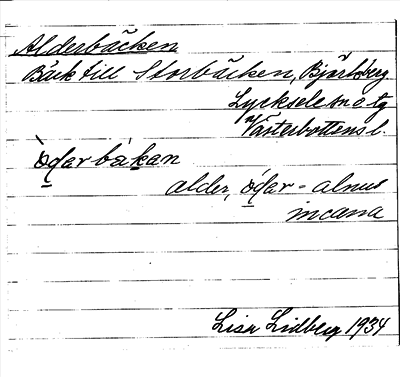 Alderbäcken
Bäck till Storbäcken, Björksberg
Lycksele sn o tg
Västerbottens l.
òdarbákan
alder, ódar = alnus
incana
Lisa Lidberg 1934